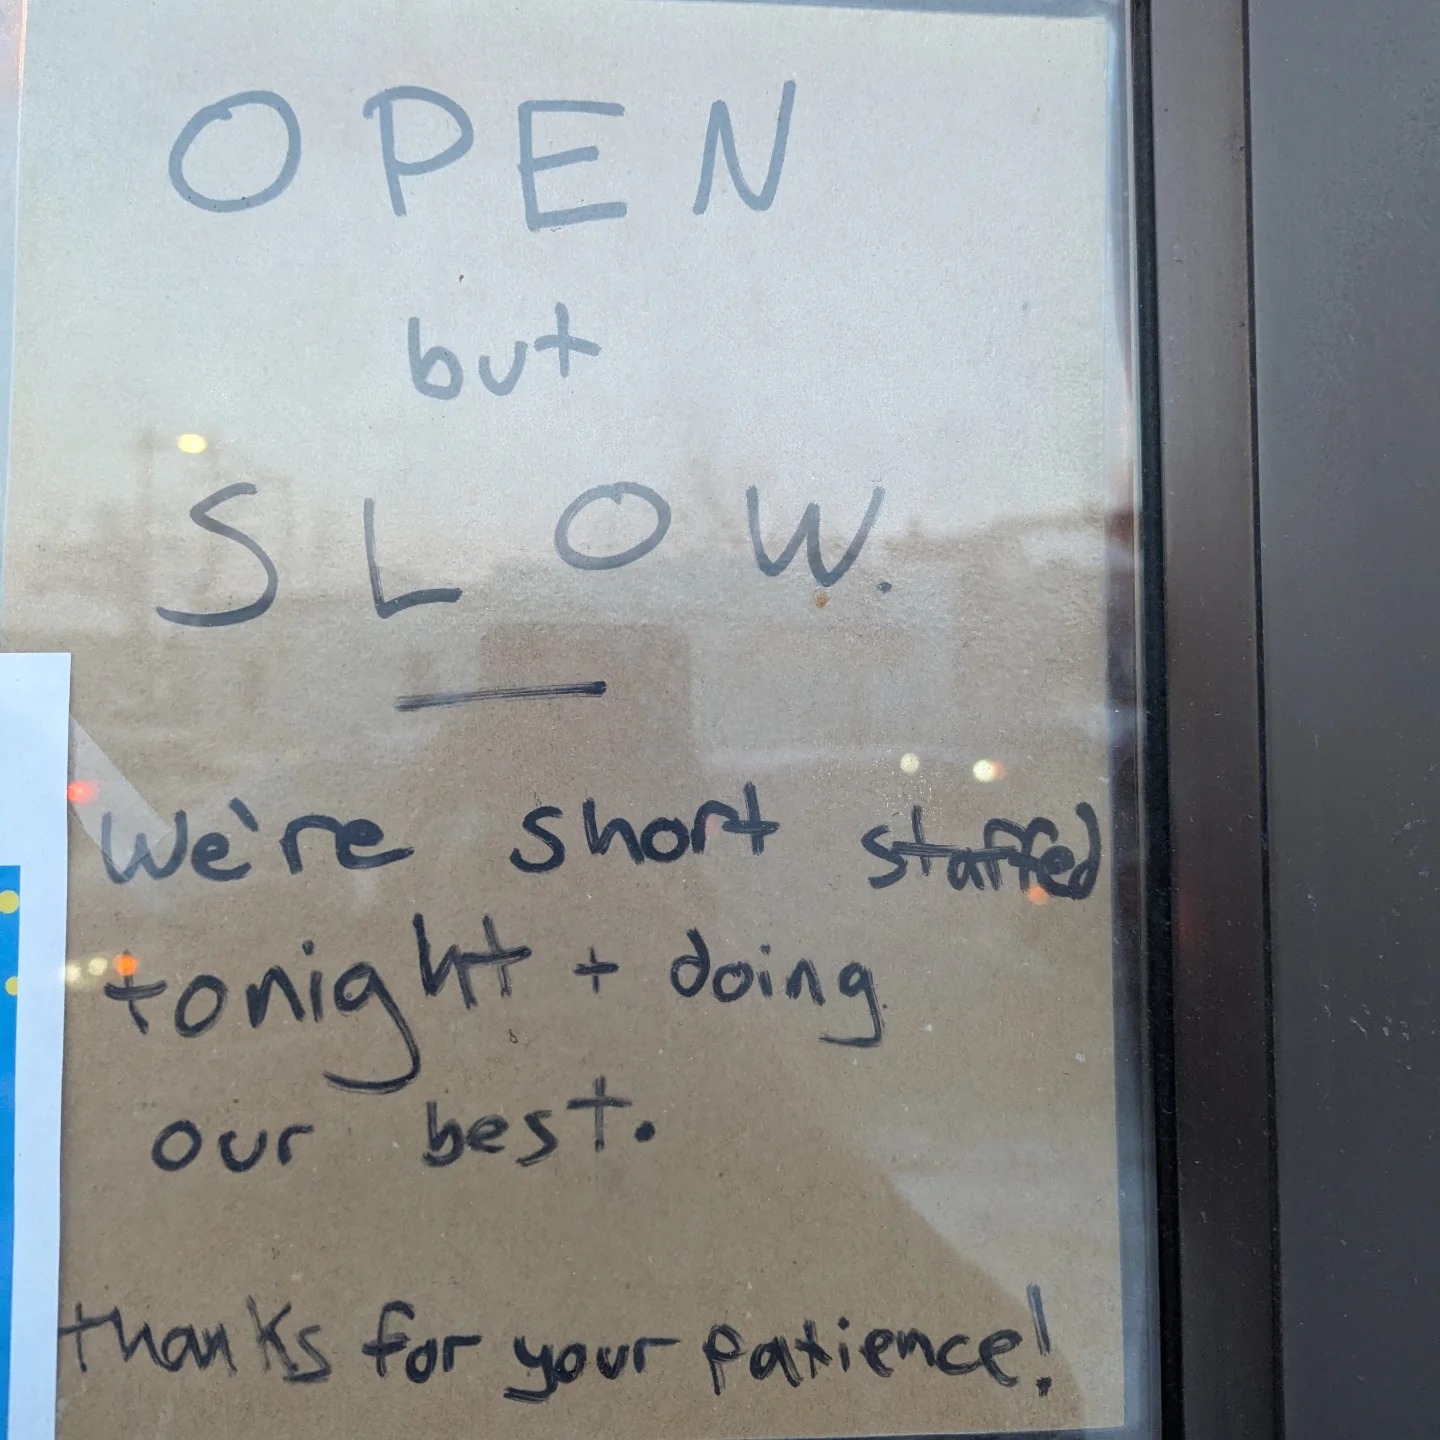 OPEN
but
SLOW.
We're short staffed
tonight + doing
our best.
thanks for your patience!